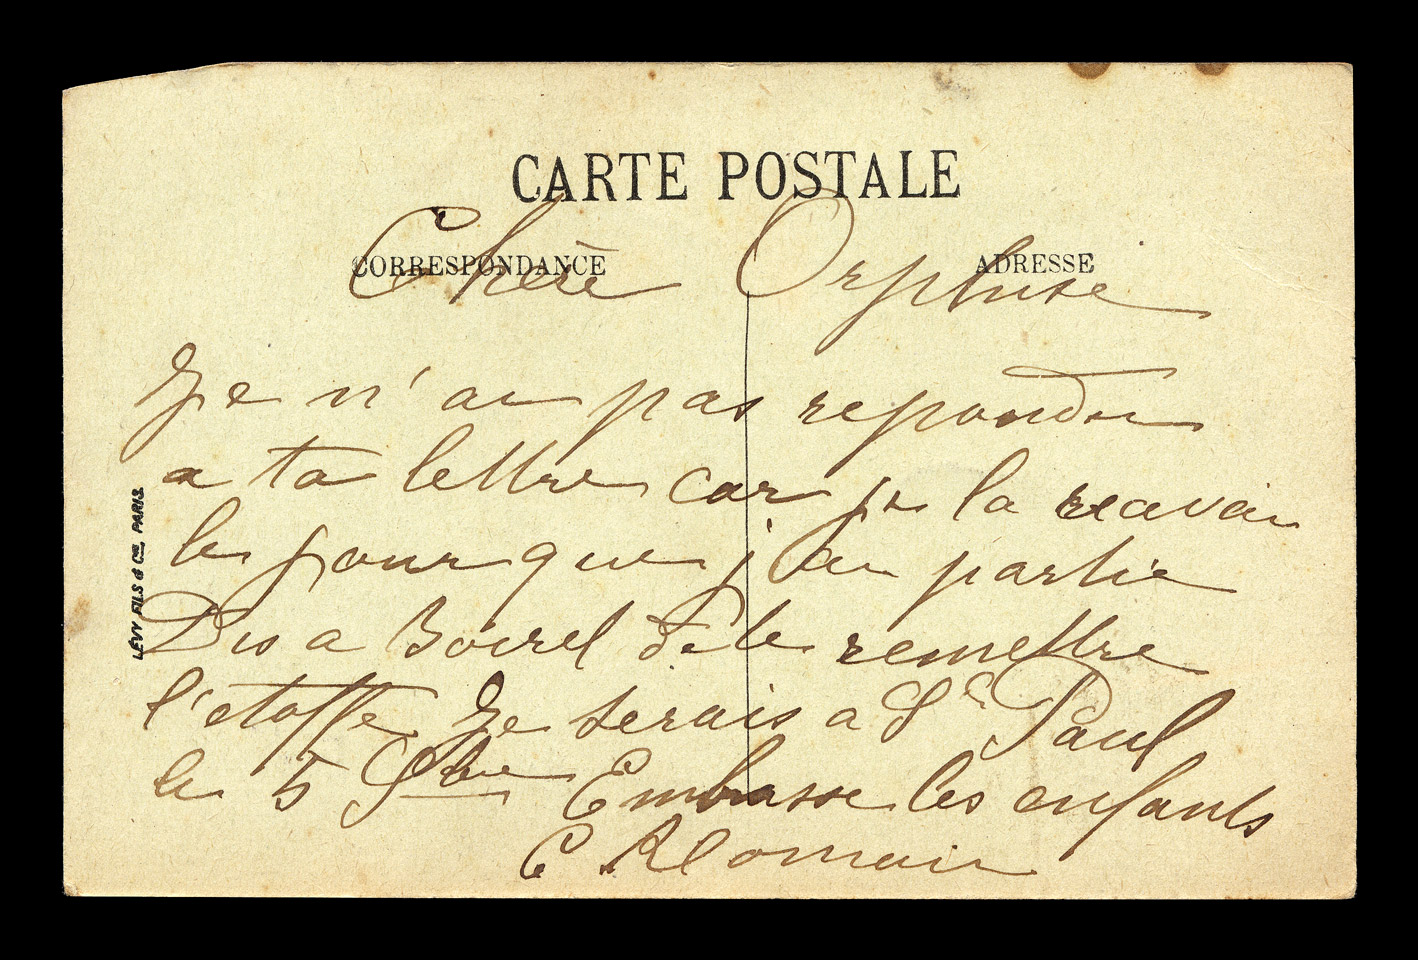 CARTE POSTALE
CORRESPONDANCE
ADRESSE
Chère Orphise
Je n'ai pas repondu
a ta lettre car je la recevai
le jour que j'ai partie
Dis a Boirel de te remettre
l'etoffe Je serais a St Paul
le 5 Embrasse les enfants
C Romain
LÉVY FILS & Cie, PARIS